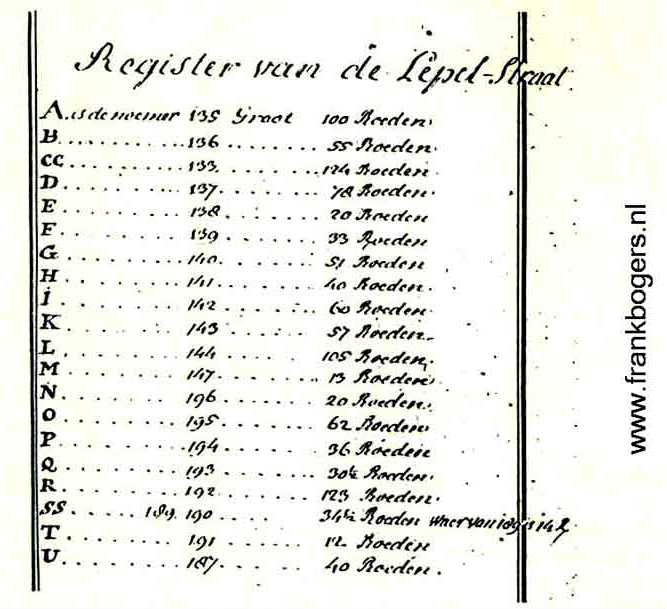 Register van de Lepel-Straat
A. is de noemer 135 Groot 100 Roeden
B 136 55 Roeden
CC 133 124 Roeden
D 137 78 Roeden
E 138 20 Roeden
F 139 33 Roeden
G 140 51 Roeden
H 141 40 Roeden
i 142 60 Roeden
K 143 57 Roeden
L 144 105 Roeden
M 147 13 Roeden
N 196 20 Roeden
O 195 62 Roeden
P 194 36 Roeden
Q 193 30½ Roeden
R 192 123 Roeden
SS 189. 190 34½ Roeden waer van 189 is 14
T 191 12 Roeden
U 187 40 Roeden
www.frankbogers.nl